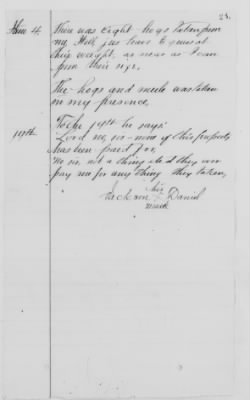 25.
Item 4 There was eight hogs taken from
me, they
their weight, as near as I can
from their size.
The hogs and mule was taken
in my presence.
19th To the 19th he says:
Lord no, sir - none of this property
has been paid for,
No sir, not a thing else did they ever
pay me for any thing they taken,
his
Jackson X Daniel
mark